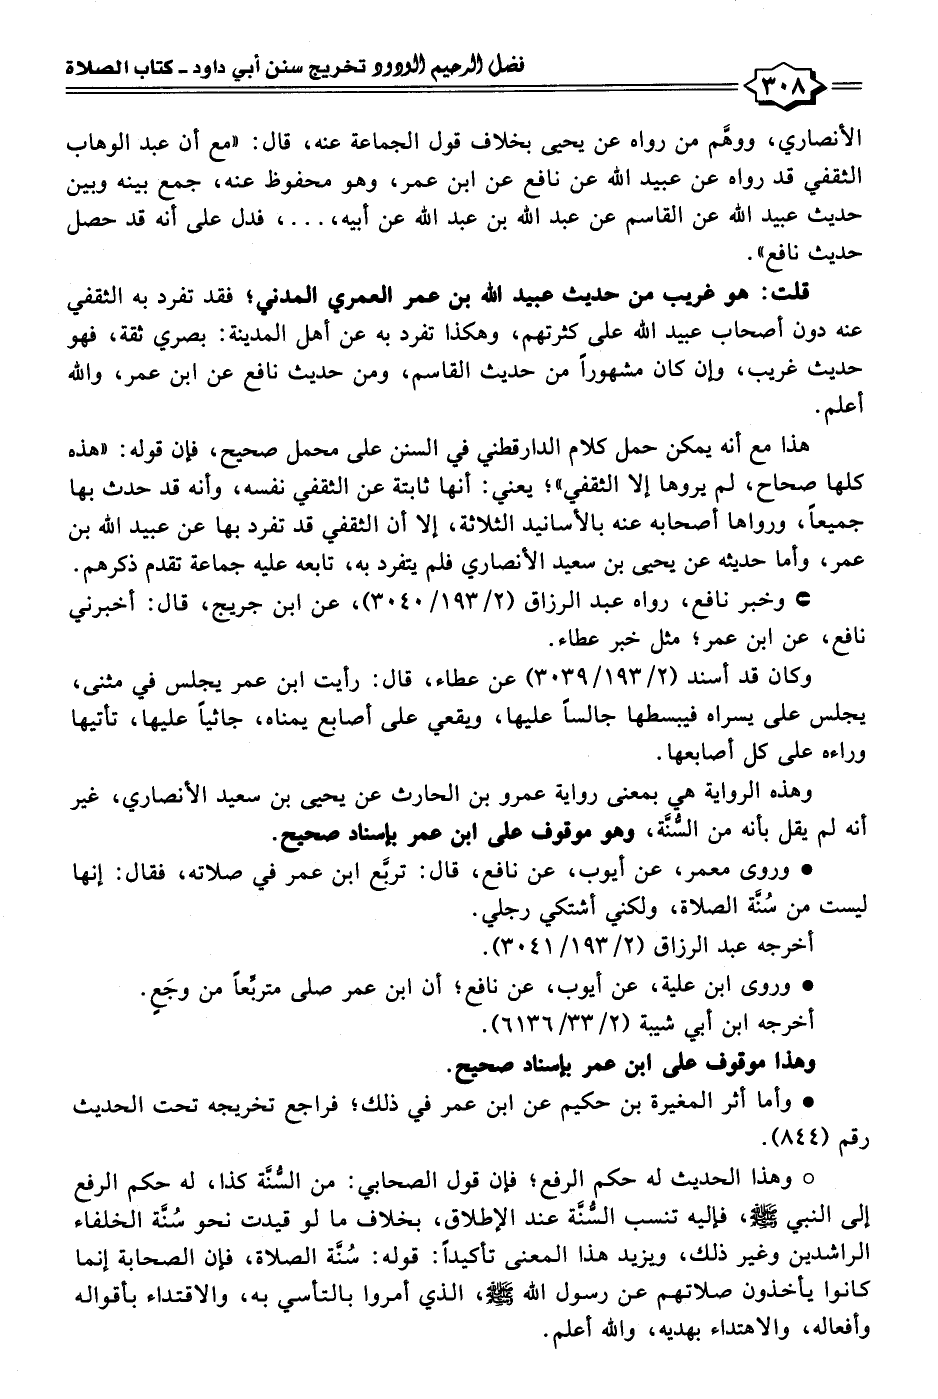 فضل الرحيم الودود تخريج سنن أبي داود - كتاب الصلاة
٣٠٨
الأنصاري، ووهَّم من رواه عن يحيى بخلاف قول الجماعة عنه، قال: «مع أن عبد الوهاب
الثقفي قد رواه عن عبيد الله عن نافع عن ابن عمر، وهو محفوظ عنه، جمع بينه وبين
حديث عبيد الله عن القاسم عن عبد الله بن عبد الله عن أبيه، ...، فدل على أنه قد حصل
حديث نافع».
قلت: هو غريب من حديث عبيد الله بن عمر العمري المدني؛ فقد تفرد به الثقفي
عنه دون أصحاب عبيد الله على كثرتهم، وهكذا تفرد به عن أهل المدينة: بصري ثقة، فهو
حديث غريب، وإن كان مشهوراً من حديث القاسم، ومن حديث نافع عن ابن عمر، والله
أعلم.
هذا مع أنه يمكن حمل كلام الدارقطني في السنن على محمل صحيح، فإن قوله: «هذه
كلها صحاح، لم يروها إلا الثقفي»؛ يعني: أنها ثابتة عن الثقفي نفسه، وأنه قد حدث بها
جميعاً، ورواها أصحابه عنه بالأسانيد الثلاثة، إلا أن الثقفي قد تفرد بها عن عبيد الله بن
عمر، وأما حديثه عن يحيى بن سعيد الأنصاري فلم يتفرد به، تابعه عليه جماعة تقدم ذكرهم.
⊃ وخبر نافع، رواه عبد الرزاق (٢/ ١٩٣/ ٣٠٤٠)، عن ابن جريج، قال: أخبرني
نافع، عن ابن عمر؛ مثل خبر عطاء.
وكان قد أسند (٢/ ١٩٣/ ٣٠٣٩) عن عطاء، قال: رأيت ابن عمر يجلس في مثنى،
يجلس على يسراه فيبسطها جالساً عليها، ويقعي على أصابع يمناه، جاثياً عليها، تأتيها
وراءه على كل أصابعها.
وهذه الرواية هي بمعنى رواية عمرو بن الحارث عن يحيى بن سعيد الأنصاري، غير
أنه لم يقل بأنه من السُّنَّة، وهو موقوف على ابن عمر بإسناد صحيح.
• وروى معمر، عن أيوب، عن نافع، قال: تربَّع ابن عمر في صلاته، فقال: إنها
ليست من سُنَّة الصلاة، ولكني أشتكي رجلي.
أخرجه عبد الرزاق (٢/ ١٩٣/ ٣٠٤١).
• وروى ابن علية، عن أيوب، عن نافع؛ أن ابن عمر صلى متربِّعاً من وجَعٍ.
أخرجه ابن أبي شيبة (٢/ ٣٣/ ٦١٣٦).
وهذا موقوف على ابن عمر بإسناد صحيح.
• وأما أثر المغيرة بن حكيم عن ابن عمر في ذلك؛ فراجع تخريجه تحت الحديث
رقم (٨٤٤).
○ وهذا الحديث له حكم الرفع؛ فإن قول الصحابي: من السُّنَّة كذا، له حكم الرفع
إلى النبي ﷺ، فإليه تنسب السُّنَّة عند الإطلاق، بخلاف ما لو قيدت نحو سُنَّة الخلفاء
الراشدين وغير ذلك، ويزيد هذا المعنى تأكيداً: قوله: سُنَّة الصلاة، فإن الصحابة إنما
كانوا يأخذون صلاتهم عن رسول الله ﷺ، الذي أمروا بالتأسي به، والاقتداء بأقواله
وأفعاله، والاهتداء بهديه، والله أعلم.